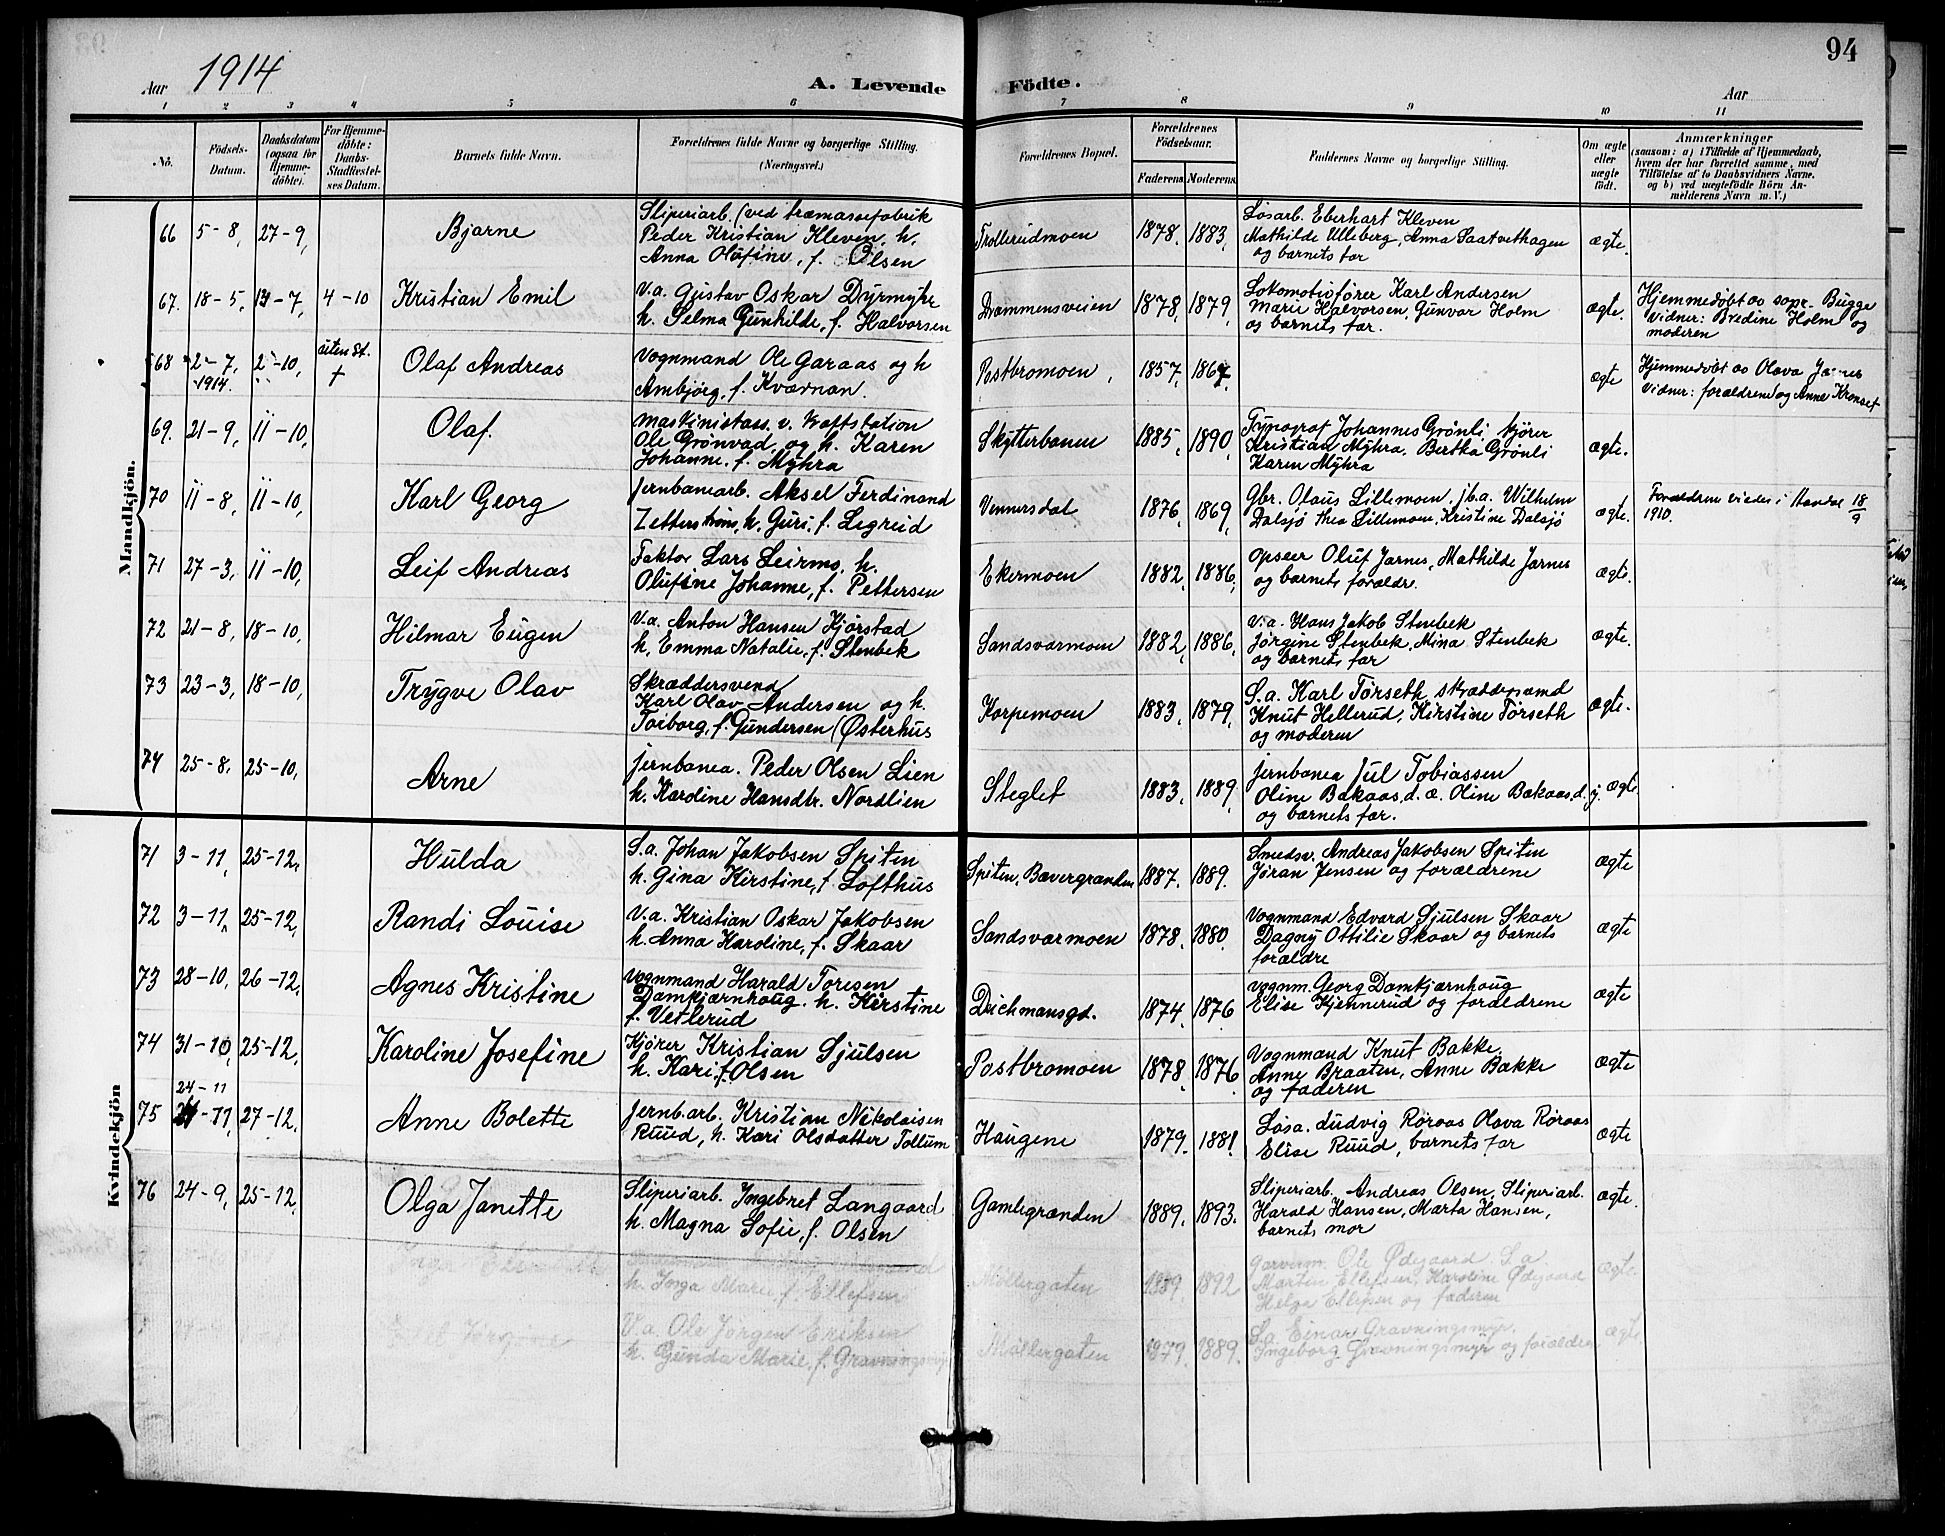 94
Aar 1914
A. Levende Födte.
Aar
1 2 3 4 5 6 7 8 9 10 11
No.
Födsels-Datum.
Daabsdatum (ogsaa for Hjemme-döbte).
For Hjemme-döbte: Daabs-Stadfæstel-ses Datum.
Barnets fulde Navn.
Forældrenes fulde Navne og borgerlige Stilling. (Næringsvei.)
Forældrenes Bopæl.
Forældrenes Födselsaar.
Faderens. Moderens.
Faddernes Navne og borgerlige Stilling.
Om ægte eller uægte födt.
Anmærkninger
(saasom: a) i Tilfælde af Hjemmedaab,
hvem der har forrettet samme, med
Tilföielse af to Daabsvidners Navne.
og b) ved uægtefödte Börn An-
melderens Navn m. V.)
Mandkjön.
66 5-8, 27-9, Bjarne
Sliperiarb. (ved træmassefabrik
Peder Kristian Kleven, h.
Anna Olafine, f. Olsen
Trollerudmoen 1878, 1883,
Løsarb. Eberhart Kleven
Mathilde Ulleberg, Anna Saatvethagen
og barnets far
ægte.
67. 18-5, 13-7, 4-10 Kristian Emil
V.a. Gustav Oskar Dyrmyhr
h. Selma Gunhilde, f. Halvorsen
Drammensveien 1878, 1879,
Lokomotivfører Karl Andersen
Marie Halvorsen, Gunvor Holm
og barnets far.
ægte.
Hjemmedøbt av sogr. Bugge
Vidner: Bredine Holm og
moderen
68 2-7, 1914. 2-10, uten St. † Olaf Andreas
Vognmand Ole Garaas og h
Ambjørg, f. Kværnan.
Postbromoen, 1857,
ægte
Hjemmedøbt av Olava
Vidner: forældrene og Anne Kronset
69. 21-9, 11-10, Olaf.
Maskinistass. v. Kraftstation
Ole Grønvad og h. Karen
Johanne, f. Myhra
Skytterbanen 1885, 1890,
Typograf Johannes Grønli, kjører
Kristian Myhra, Bertha Grønli
Karen Myhra
ægte.
70 11-8, 11-10, Karl Georg
Jernbanearb. Aksel Ferdinand
Zetterstrøm, h. Guri, f. Legreid
Vennersdal 1876, 1869,
Gbr. Olaus Lillemoen, jb.a. Wilhelm
Dalsjø Thea Lillemoen, Kristine Dalsjø
ægte.
Forældrene viedes i 18/9
1910.
71 27-3, 11-10, Leif Andreas
Faktor Lars Leirmo, h.
Olufine Johanne, f. Pettersen
Ekermoen 1882, 1886,
Opseer Oluf Jarnes, Mathilde Jarnes
og barnets forældr.
ægte.
72 21-8, 18-10, Hilmar Eugen
V.a. Anton Hansen Kjørstad
h. Emma Natalie, f. Stenbek
Sandsværmoen 1882, 1886,
V.a. Hans Jakob Stenbek
Jørgine Stenbek, Mina Stenbek
og barnets far
ægte.
73 23-3, 18-10, Trygve Olav
Skræddersvend
Karl Olav Andersen og h.
Toiborg, f. Gundersen (Østerhus
Korpemoen 1883, 1879,
S.a. Karl Tørseth, skræddersvend
Knut Hellerud, Kirstine Tørseth
og moderen
ægte.
74 25-8, 25-10, Arne
Jernbanea. Peder Olsen Lien
h. Karoline Hansdtr. Nordlien
Steglet 1883, 1889,
Jernbanea Jul Tobiassen
Oline Bakaas, d. æ. Oline Bakaas, d. y.
og barnets far.
ægte
Kvindekjön
71 3-11, 25-12, Hulda
S.a. Johan Jakobsen Spiten
h. Gina Kirstine, f. Lofthus
Spiten, Bævergrænden 1887. 1889.
Smedsv. Andreas Jakobsen Spiten
Jøran Jensen og forældrene
ægte
72 3-11, 25-12, Randi Louise
V.a. Kristian Oskar Jakobsen
h. Anna Karoline, f. Skaar
Sandsværmoen 1878, 1880.
Vognmand Edvard Sjulsen Skaar
Dagny Ottilie Skaar og barnets
forældre
ægte
73 28-10, 26-12, Agnes Kristine
Vognmand Harald Toresen
Damkjærnhoug. h. Kirstine
f. Vetlerud
Dichmansgd. 1874, 1876
Vognm. Georg Damkjærnhoug
Elise Kjennerud og forældrene
ægte
74 31-10, 25-12, Karoline Josefine
Kjører Kristian Sjulsen
h. Kari, f. Olsen
Postbromoen 1878, 1876.
Vognmand Knut Bakke,
Anne Braaten, Anne Bakke
og faderen
ægte
24-11
75 27-12, Anne Bolette
Jernb.arb. Kristian Nikolaisen
Ruud, h. Kari Olsdatter Tollum
Haugene 1879. 1881
Løsa. Ludvig Røraas Olava Røraas
Elise Ruud, barnets far
ægte
76 24-9, 25-12, Olga Janette
Sliperiarb. Ingebret Langaard
h. Magna Sofie, f. Olsen
Gamlegrænden 1889. 1893.
Sliperiarb. Andreas Olsen, Sliperiarb.
Harald Hansen, Marta Hansen,
barnets mor
ægte.
Inga
h. Inga Marie f. Ellefsen
Møllergaten 1889. 1892
Garverm. Ole Ødegaard S.a.
Martin Ellefsen, Karoline Ødegaard
Helga Ellefsen og faderen
ægte.
V.a. Ole Jørgen Eriksen
h. Gunda Marie, f. Gravningsmyr
Møllergaten 1879. 1889.
S.a. Einar Gravningsmyr.
Ingeborg Gravningsmyr og forældre
ægte